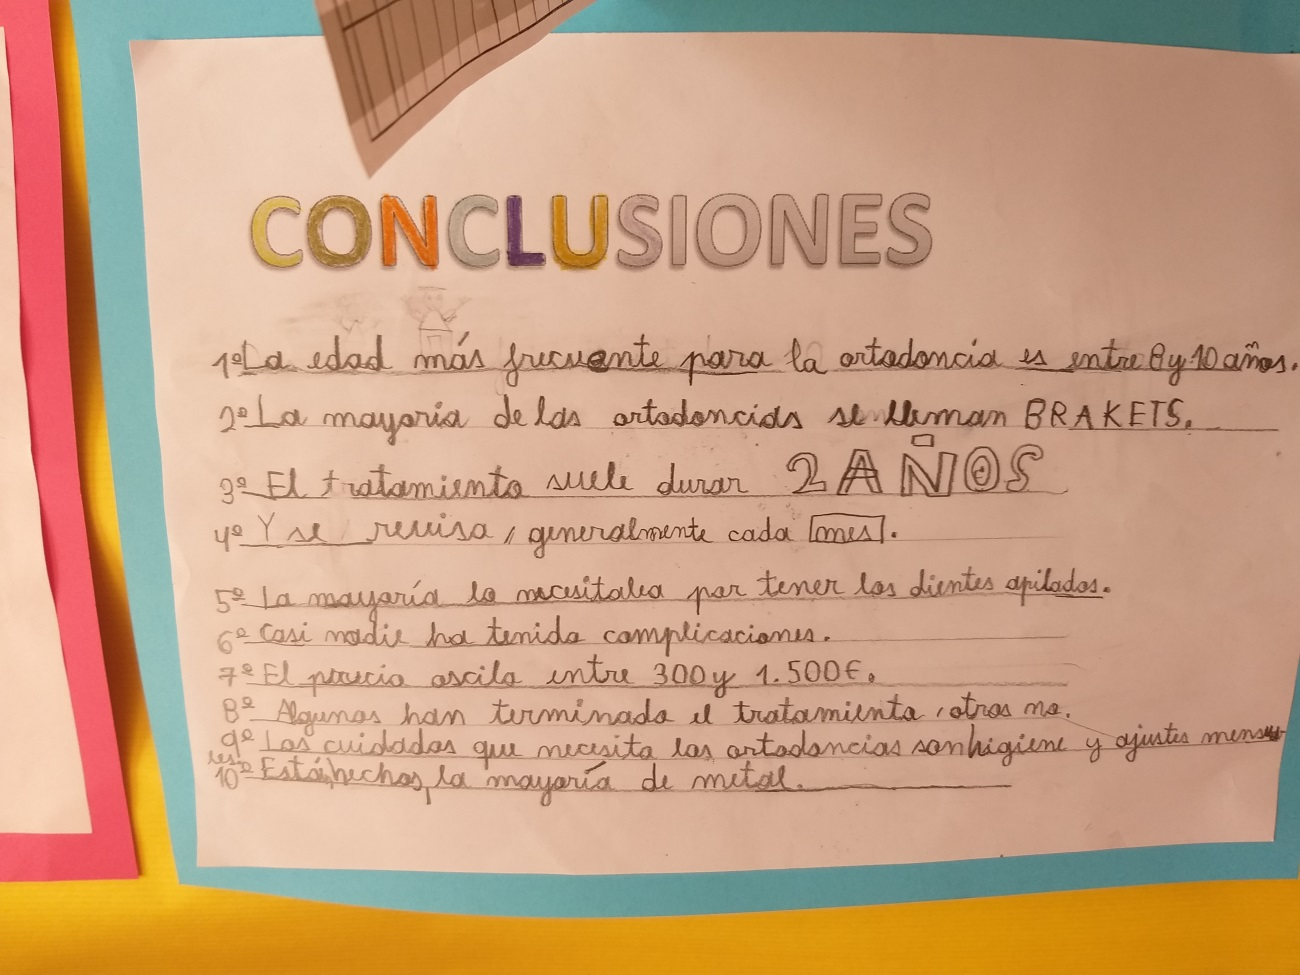 CONCLUSIONES
1º La edad más frecuente para la ortodoncia es entre 8 y 10 años.
2º La mayoria de las ortodoncias se llaman BRAKETS.
3º El tratamiento suele durar 2 AÑOS
4º Y se revisa, generalmente cada mes.
5º La mayoría lo necesitaba por tener los dientes apilados.
6º Casi nadie ha tenido complicaciones.
7º El precio oscila entre 300 y 1.500€.
8º Algunos han terminado el tratamiento, otros no.
9º Los cuidados que necesita las ortodoncias son higiene y ajustes mensu
les
10º Está hechos, la mayoría de metal.